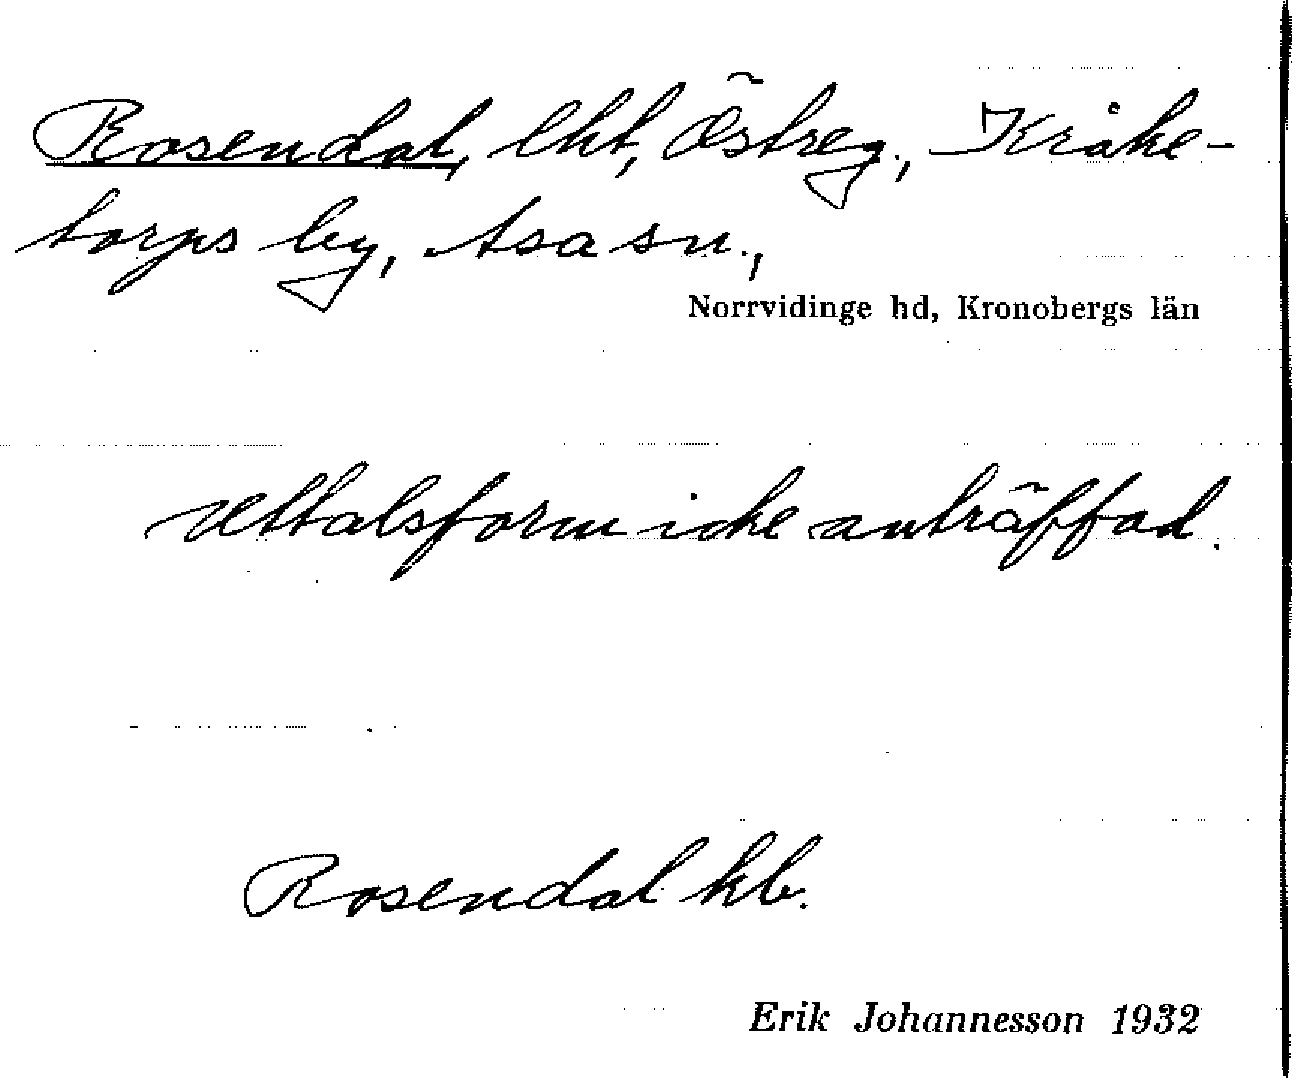 Rosendal, lht, Östreg., Kråke-
torps by, Asa sn.,
Norrvidinge hd, Kronobergs län
Uttalsform icke anträffad.
Rosendal kb.
Erik Johannesson 1932